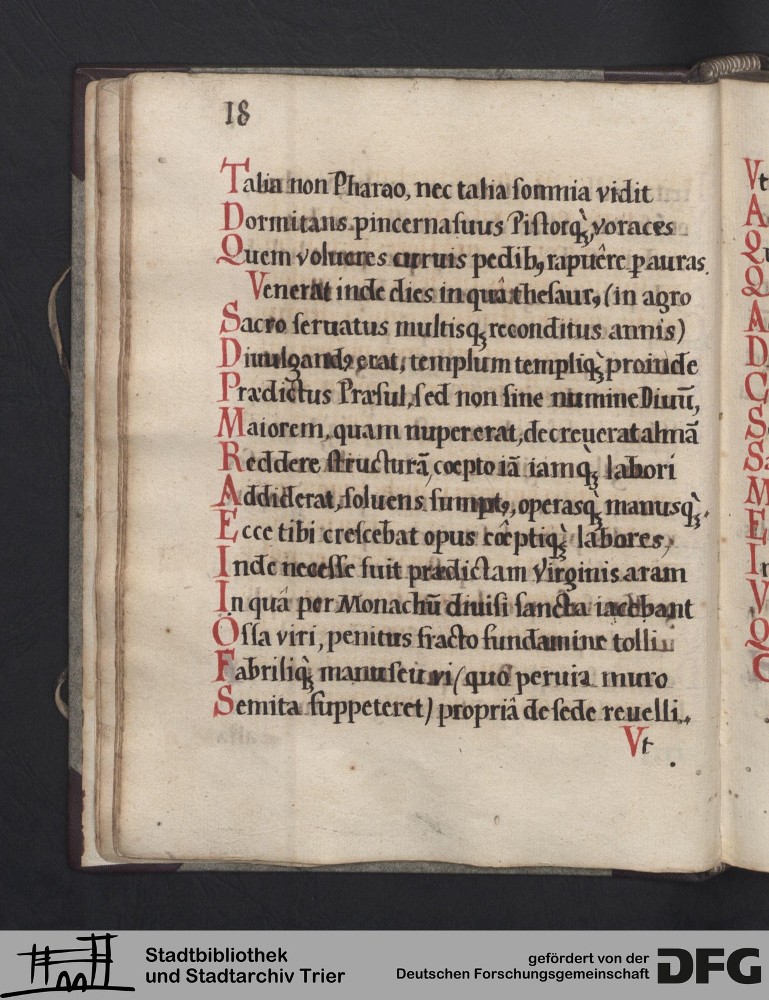 18
Talia non Pharao, nec talia somnia vidit
Dormitans pincerna suus Pistorq̀ȝ voraces
Quem volucres curuis pedibꝫ rapuêre ꝑ auras.
Venerat inde dies in quâ thesaurꝰ (in agro
Sacro seruatus multisqȝ reconditus annis)
Diuulgandꝰ erat, templum templiq̀ȝ proinde
Prædictus Præsul, sed non sine numine Diuū,
Maiorem, quam nuper erat, decreuerat almā
Reddere structurā, cœpto iā iamqȝ labori
Addiderat, soluens sumptꝰ, operasq̀ȝ manusq̀ȝ.
Ecce tibi crescebat opus cœptiq̀ȝ labores,
Inde necesse fuit prædictam Virginis aram
In quâ per Monachū diuisi sancta iacebant
Ossa viri, penitus fracto fundamine tolli
Fabriliq̀ȝ manu seu vi (quo peruia muro
Semita suppeteret) propriâ de sede reuelli.
Vt
Vt
A
Q
Q
A
D
C
S
S
M
E
In
V
Q
C
Stadtbibliothek
und Stadtarchiv Trier
gefördert von der
Deutschen Forschungsgemeinschaft
DFG